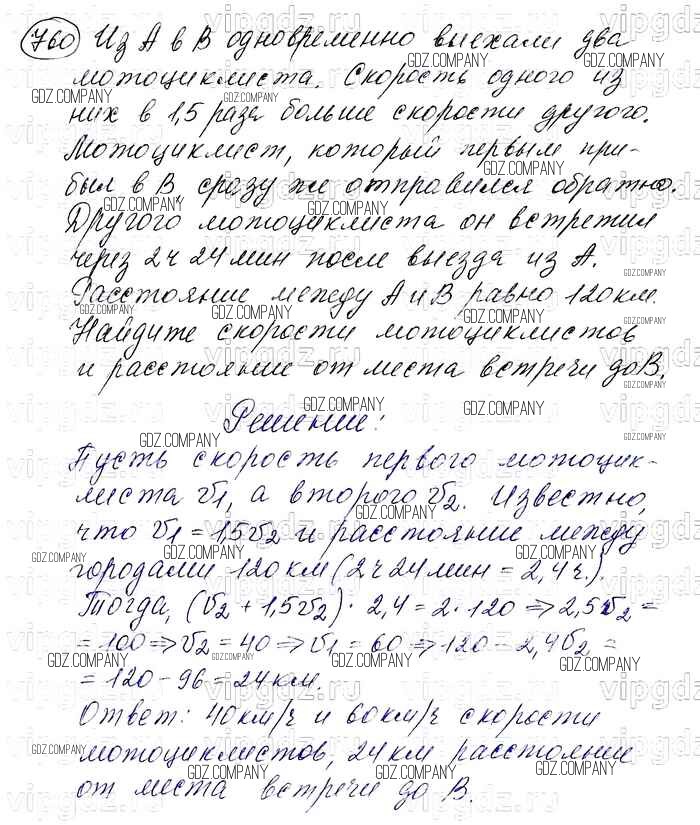 760 Из А в В одновременно выехали два
мотоциклиста. Скорость одного из
них в 1,5 раза больше скорости другого.
Мотоциклист, который первым при-
был в В сразу же отправился обратно.
Другого мотоциклиста он встретил
через 2ч 24мин после выезда из А.
Расстояние между А и В равно 120км.
Найдите скорости мотоциклистов
и расстояние от места встречи до В.
Решение:
Пусть скорость первого мотоцик-
листа v1, а второго v2. Известно,
что v1 = 1,5v2 и расстояние между
городами 120 км (2ч 24мин = 2,4ч.).
Тогда, (v2 + 1,5v2) · 2,4 = 2 · 120 ⇒ 2,5v2 =
= 100 ⇒ v2 = 40 ⇒ v1 = 60 ⇒ 120 - 2,4v2 =
= 120 - 96 = 24км.
Ответ: 40км/ч и 60км/ч скорости
мотоциклистов, 24 км расстояние
от места встречи до В.